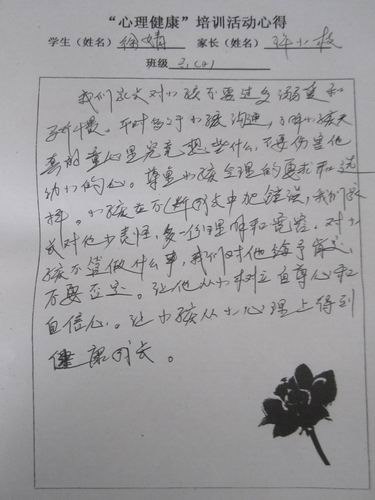 “心理健康”培训活动心得
学生（姓名） 徐婧 家长（姓名） 许小枝
班级 2.(4)
我们家长对小孩不要过多溺爱和
平时多于小孩沟通，了解小孩天
真的童心里究竟想些什么，不要伤害他
幼小的心。尊重小孩合理的要求和选
择。小孩在不断成长中犯错误，我们家
长对他少责怪，多一份理解和宽容。对小
孩不管做什么事，我们对他给予肯定，
不要否定。让他从小树立自尊心和
自信心。让小孩从小心理上得到
健康成长。